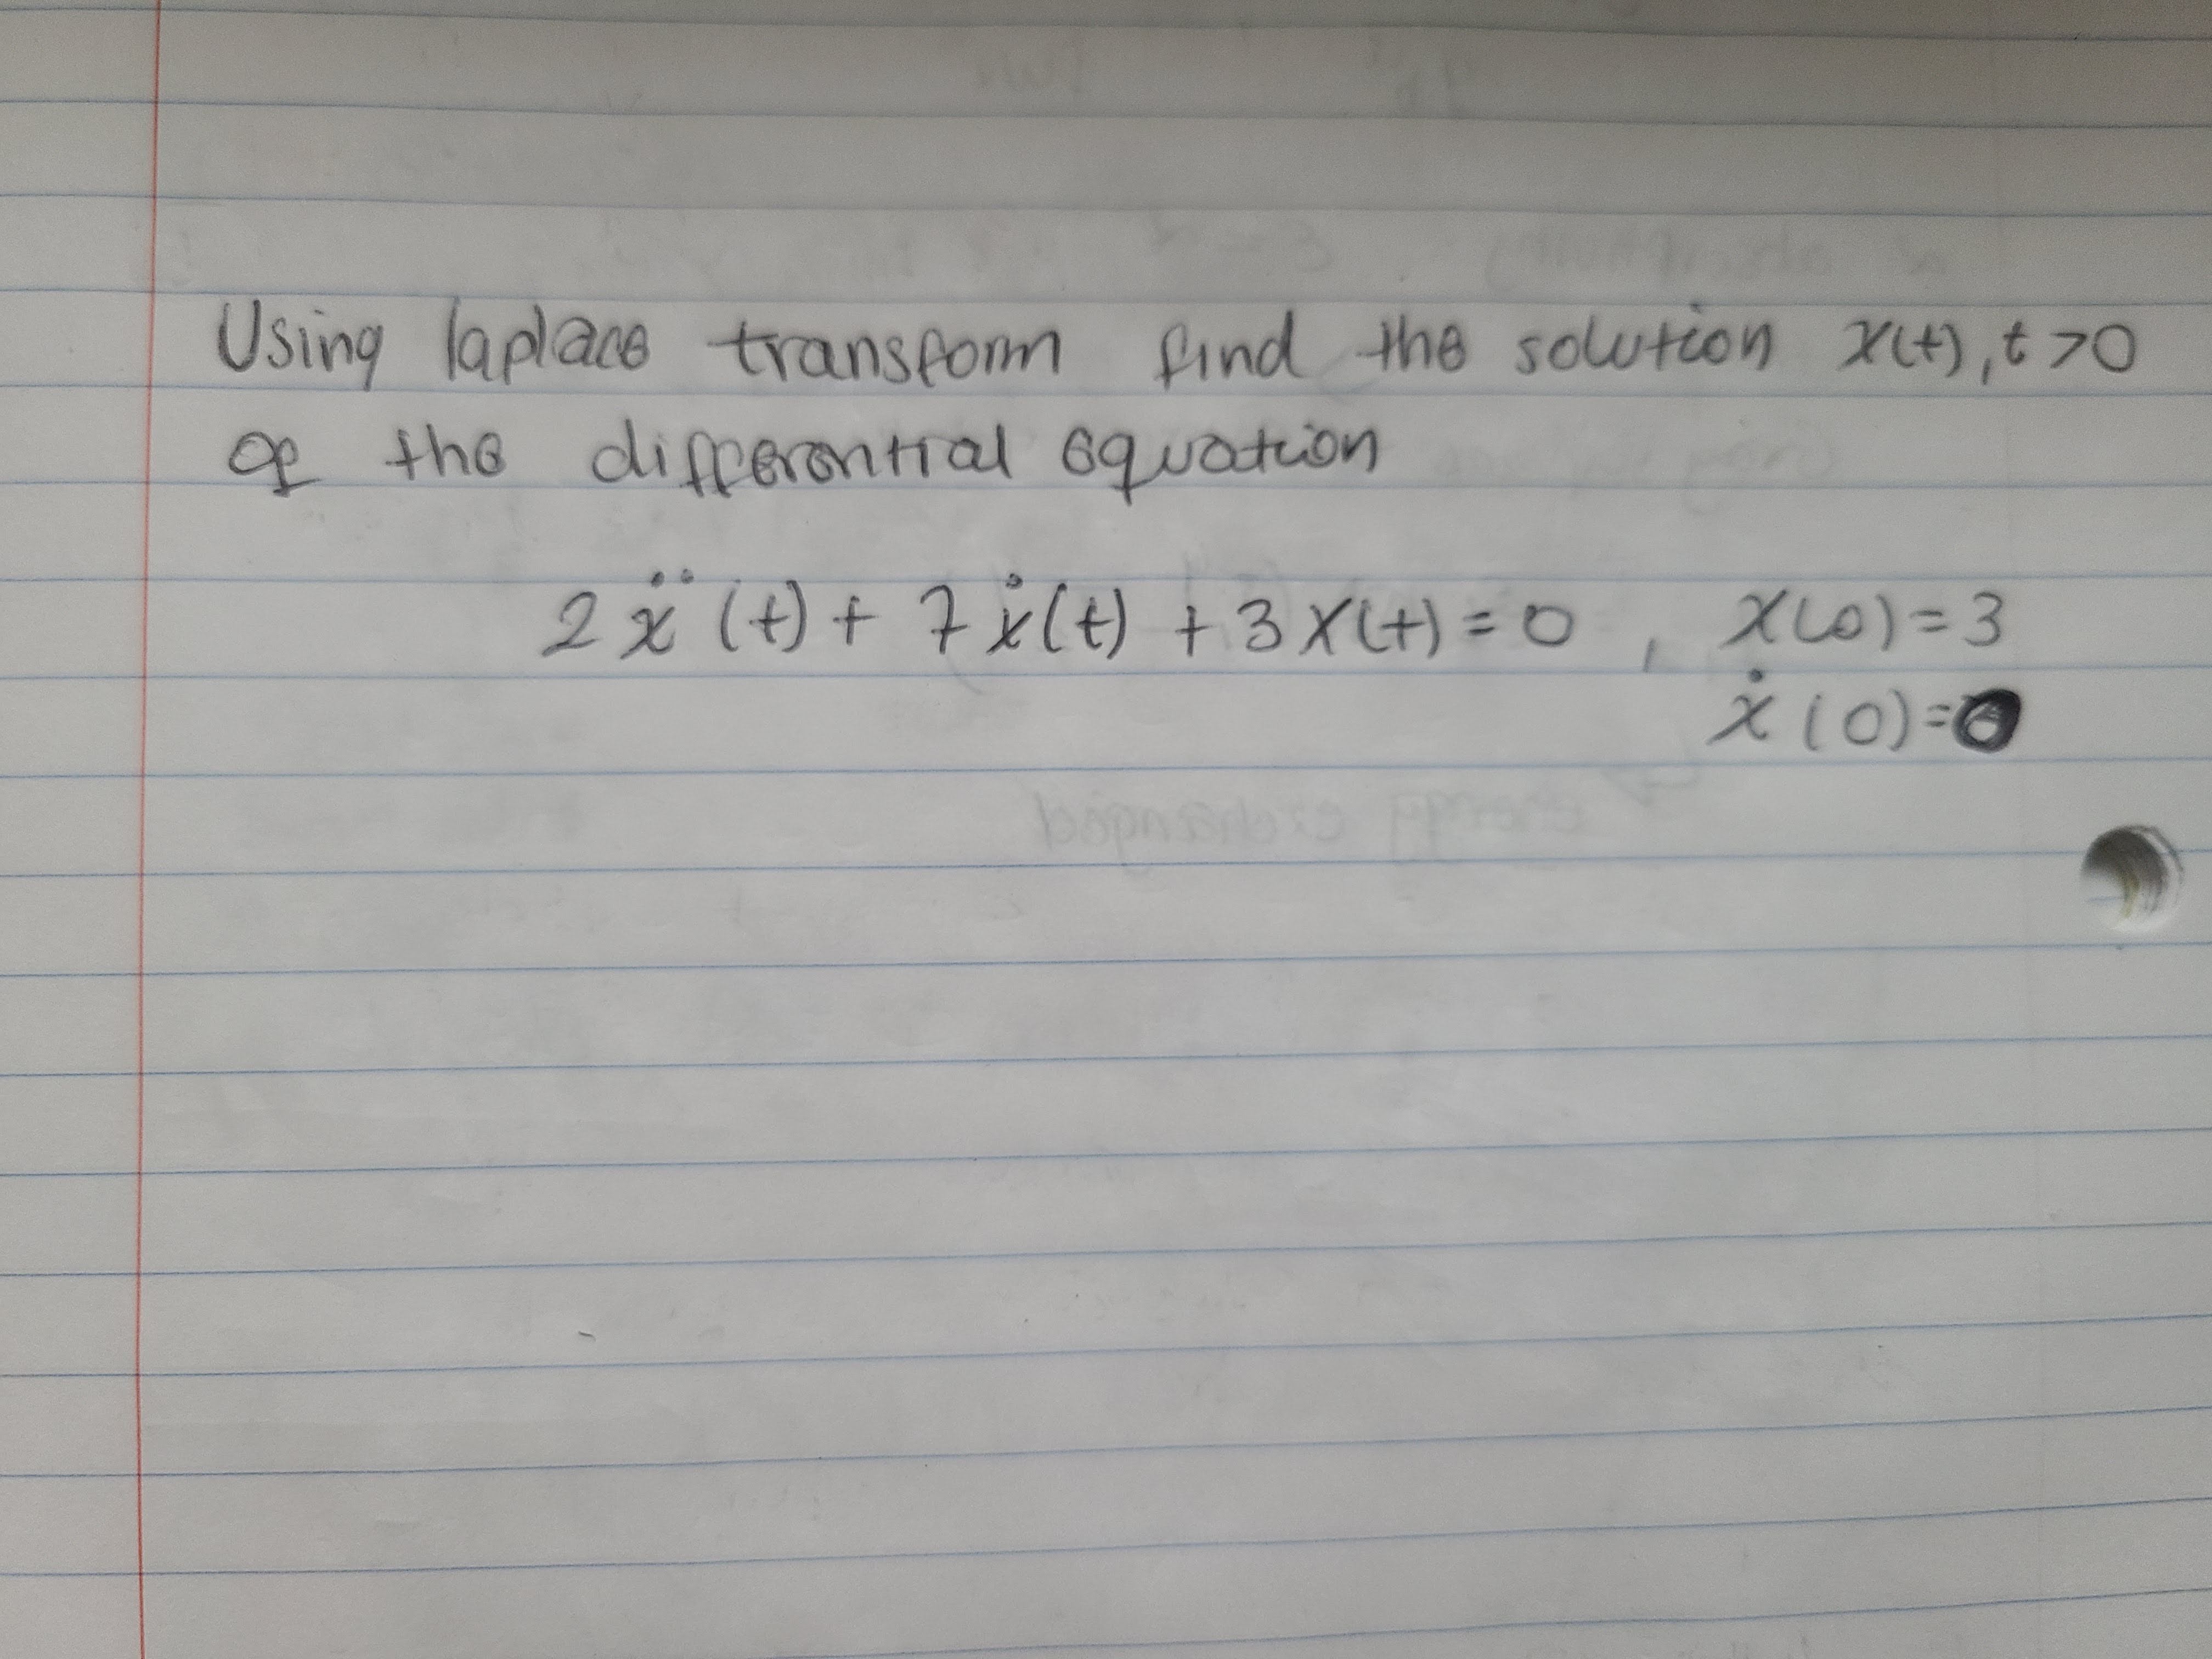 Using laplace transform find the solution x(t), t>0
of the differential equation
2ẍ(t) + 7ẋ(t) + 3x(t) = 0 , x(0) = 3
ẋ(0) = 0